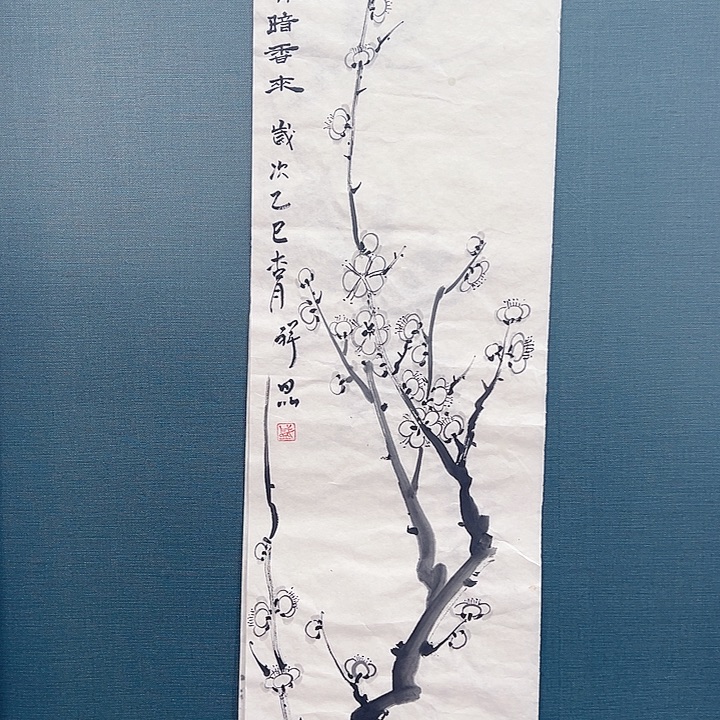 暗香來 歲次乙巳杏月 祥昆